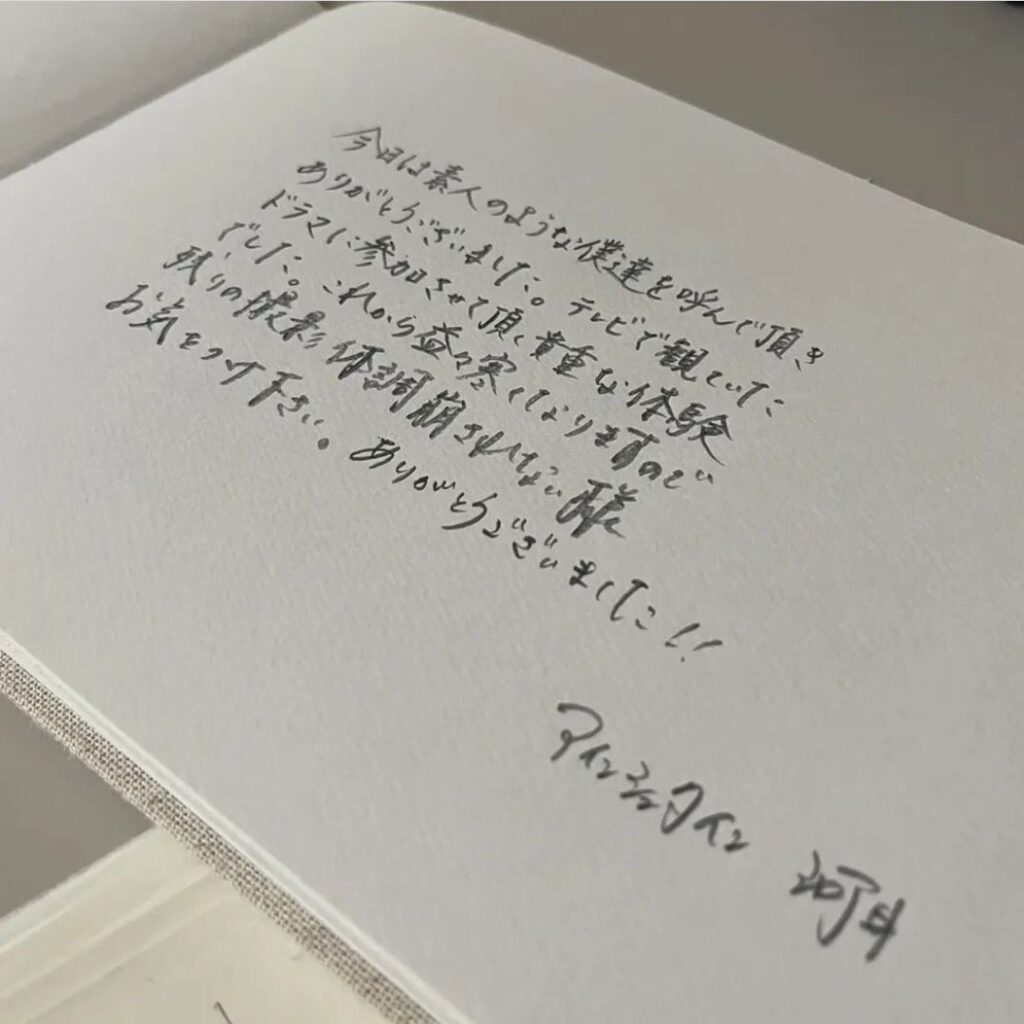 今日は素人のような僕達を呼んで頂き
ありがとうございました。テレビで観ていた
ドラマに参加させて頂く貴重な体験
でした。これから益々寒くなりますので
残りの撮影体調崩されない様
お気をつけ下さい。ありがとうございました!!
アインシュタイン 河井